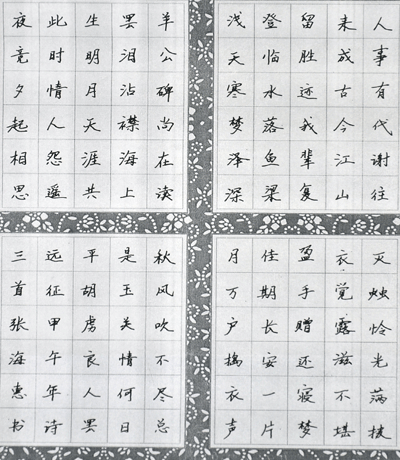 人事有代谢往
来成古今江山
留胜迹我辈复
登临水落鱼梁
浅天寒梦泽深
羊公碑尚在读
罢泪沾襟海上
生明月天涯共
此时情人怨遥
夜竟夕起相思
灭烛怜光满披
衣觉露滋不堪
盈手赠还寝梦
佳期长安一片
月万户擣衣声
秋风吹不尽总
是玉关情何日
平胡虏良人罢
远征甲午年诗
三首张海惠书